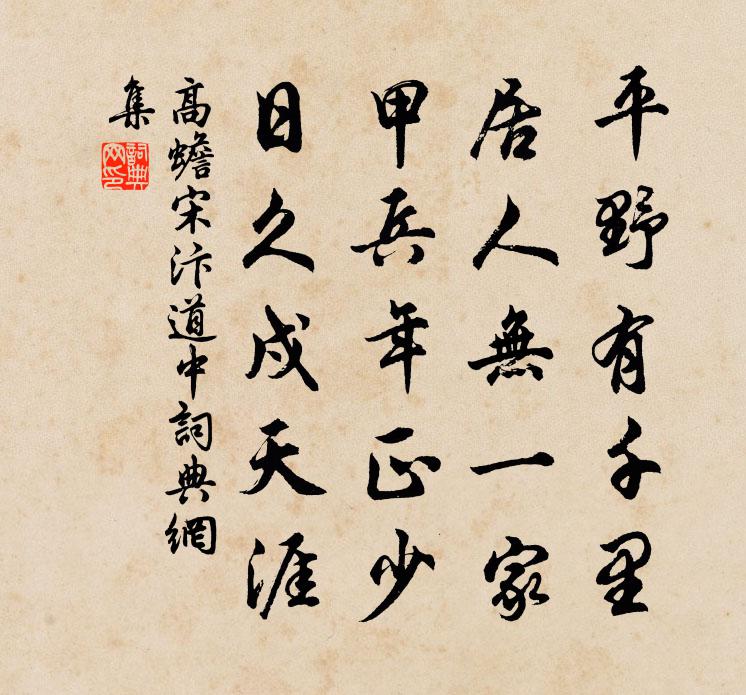 平野有千里
居人無一家
甲兵年正少
日久戍天涯
高蟾宋汴道中詞典網
集
詞典網印